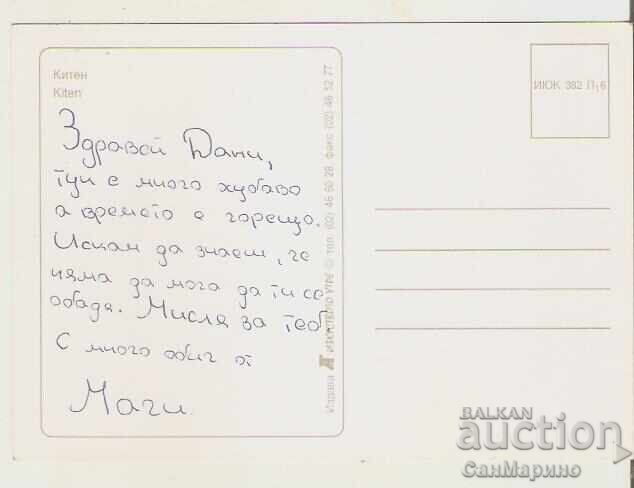 Китен
Kiten
Здравей Дани,
тук е много хубаво
а времето е горещо.
Искам да знаеш, че
няма да мога да ти се
обадя. Мисля за теб.
С много обич от
Маги.
Издава ИЗКУСТВО УТРЕ © тел. (02) 46 60 28, факс (02) 46 52 77
ИЮК 382 П
BALKAN
auction
СанМарино